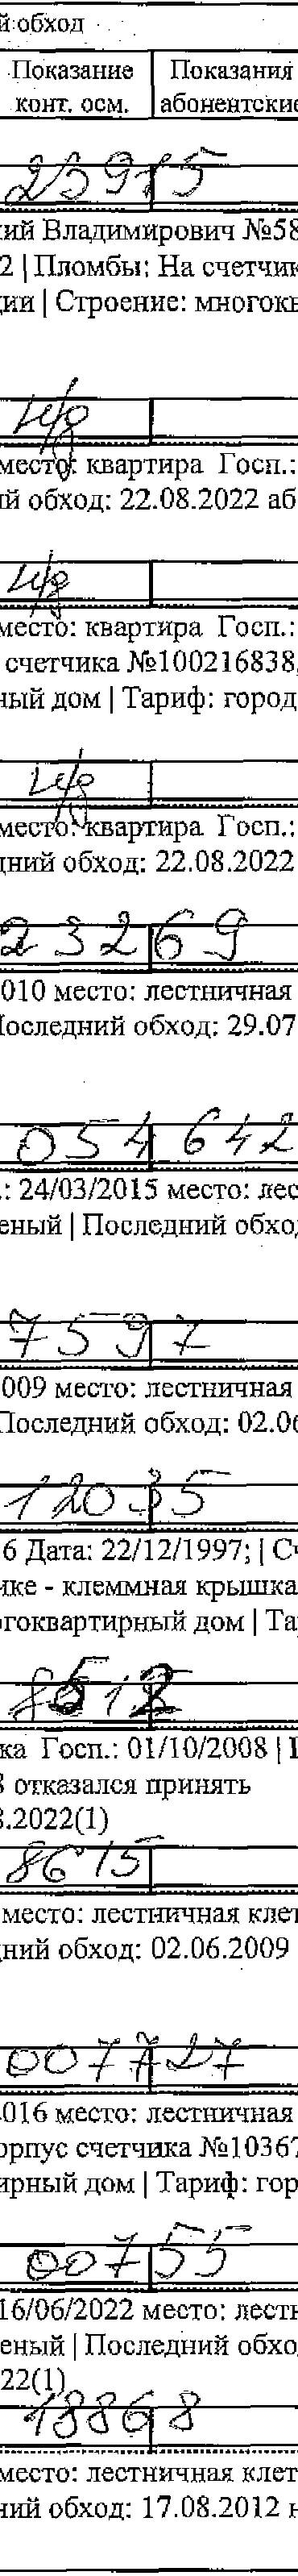 й обход
Показание Показания
конт. осм. абонентские
23915
кий Владимирович №58
2 | Пломбы: На счетчик
ции | Строение: многокв
н/д
место: квартира Госп.:
ий обход: 22.08.2022 аб
н/д
место: квартира Госп.:
счетчика №100216838,
ный дом | Тариф: город
н/д
место: квартира Госп.:
дний обход: 22.08.2022
23269
010 место: лестничная
Последний обход: 29.07
054642
.: 24/03/2015 место: лес
еный | Последний обхо
7597
009 место: лестничная
Последний обход: 02.06
12035
6 Дата: 22/12/1997; | Сч
ике - клеммная крышка
огоквартирный дом | Та
8512
ка Госп.: 01/10/2008 | П
8 отказался принять
8.2022(1)
8615
место: лестничная клет
дний обход: 02.06.2009
007727
016 место: лестничная
орпус счетчика №10367
ирный дом | Тариф: гор
00755
16/06/2022 место: лестн
еный | Последний обхо
22(1)
18868
место: лестничная клет
ний обход: 17.08.2012 н